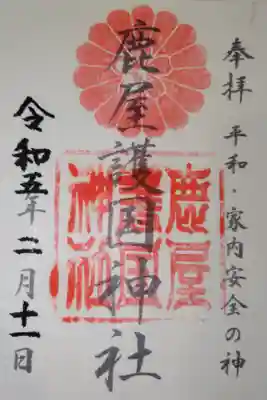 奉拝 平和・家内安全の神
鹿屋護国神社
鹿屋護国神社
令和五年二月十一日